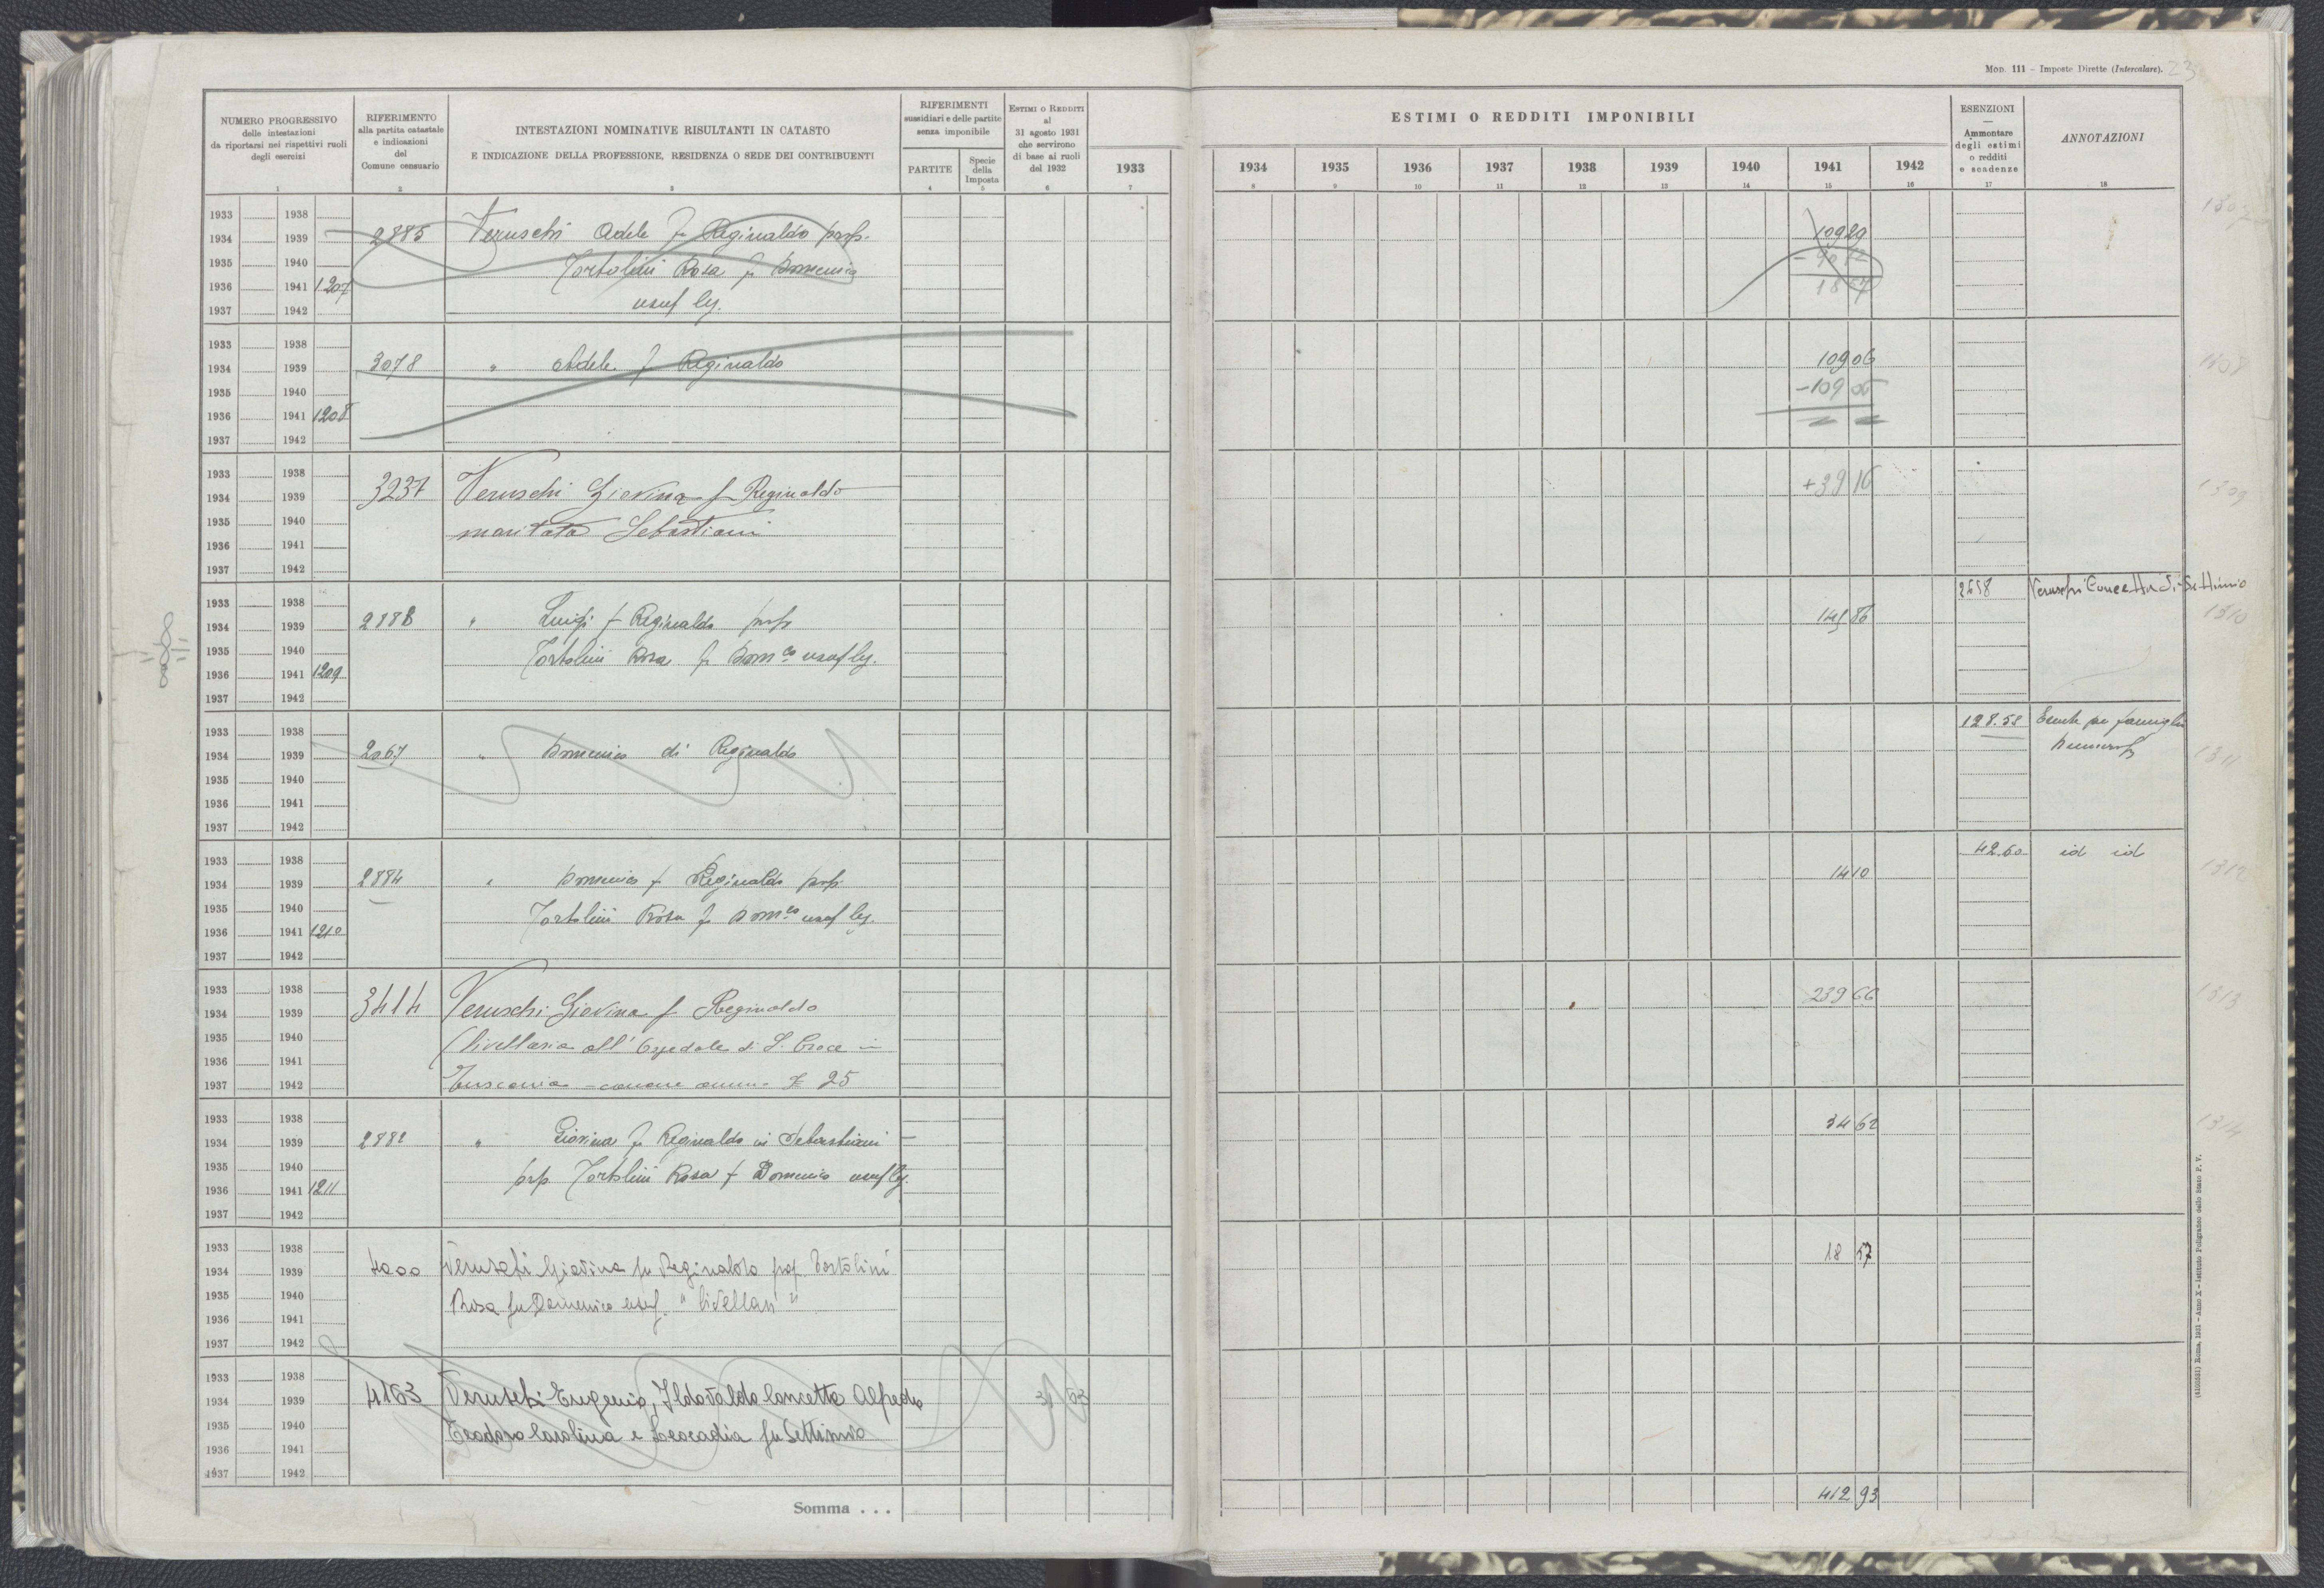 MOD. 111 - Imposte Dirette (Intercalare). 23
NUMERO PROGRESSIVO
delle intestazioni
da riportarsi nei rispettivi ruoli
degli esercizi
1
RIFERIMENTO
alla partita catastale
e indicazioni
del
Comune censuario
2
INTESTAZIONI NOMINATIVE RISULTANTI IN CATASTO
E INDICAZIONE DELLA PROFESSIONE, RESIDENZA O SEDE DEI CONTRIBUENTI
3
RIFERIMENTI
sussidiari e delle partite
senza imponibile
PARTITE
4
Specie
della
Imposta
5
ESTIMI O REDDITI
al
31 agosto 1931
che servirono
di base ai ruoli
del 1932
6
ESTIMI O REDDITI IMPONIBILI
1933 1934 1935 1936 1937 1938 1939 1940 1941 1942
7 8 9 10 11 12 13 14 15 16
ESENZIONI
—
Ammontare
degli estimi
o redditi
e scadenze
17
ANNOTAZIONI
18
1933 1938
1934 1939 2885 Veruschi Adele f Reginaldo prop. 109 29
1935 1940 Tortolini Rosa f Domenico
1936 1941 1207 usuf leg. 18 57
1937 1942
1933 1938
1934 1939 3078 " Adele f Reginaldo 109 06
1935 1940 -109 06
1936 1941 1208
1937 1942
1933 1938
1934 1939 3237 Veruschi Giovina f Reginaldo +39 16 1309
1935 1940 maritata Sebastiani
1936 1941
1937 1942
1933 1938 2658 Veruschi Concetta di Settimio
1934 1939 2888 " Luigi f Reginaldo prop 145 86 1310
1935 1940 Tortolini Rosa f Dom.co usuf leg.
1936 1941 1209
1937 1942
1933 1938 128.58 Esente per famiglia
1934 1939 2067 " Domenico di Reginaldo 1311
1935 1940
1936 1941
1937 1942
1933 1938 42.60 id id
1934 1939 2884 " Domenico f Reginaldo prop. 14 10 1312
1935 1940 Tortolini Rosa f Dom.co usuf leg.
1936 1941 1210
1937 1942
1933 1938 239 66 1313
1934 1939 3414 Veruschi Giovina f Reginaldo
1935 1940 (livellaria all'Ospedale di S. Croce in
1936 1941
1937 1942 Tuscania = canone annuo £ 25
1933 1938 34 62 1314
1934 1939 2882 " Giovina f Reginaldo in Sebastiani
1935 1940 prop Tortolini Rosa f Domenico usuf leg.
1936 1941 1211
1937 1942
1933 1938 18 57
1934 1939 4000 Veruschi Giovina fu Reginaldo prop Tortolini
1935 1940 Rosa fu Domenico usuf. "livellari"
1936 1941
1937 1942
1933 1938
1934 1939 4163 Veruschi Eugenio, Ildovaldo Concetta Alfredo 31 63
1935 1940 Teodoro Carolina e Leocadia fu Settimio
1936 1941
1937 1942
Somma . . . 412 93
(4105531) Roma, 1931 - Anno X - Istituto Poligrafico dello Stato P. V.